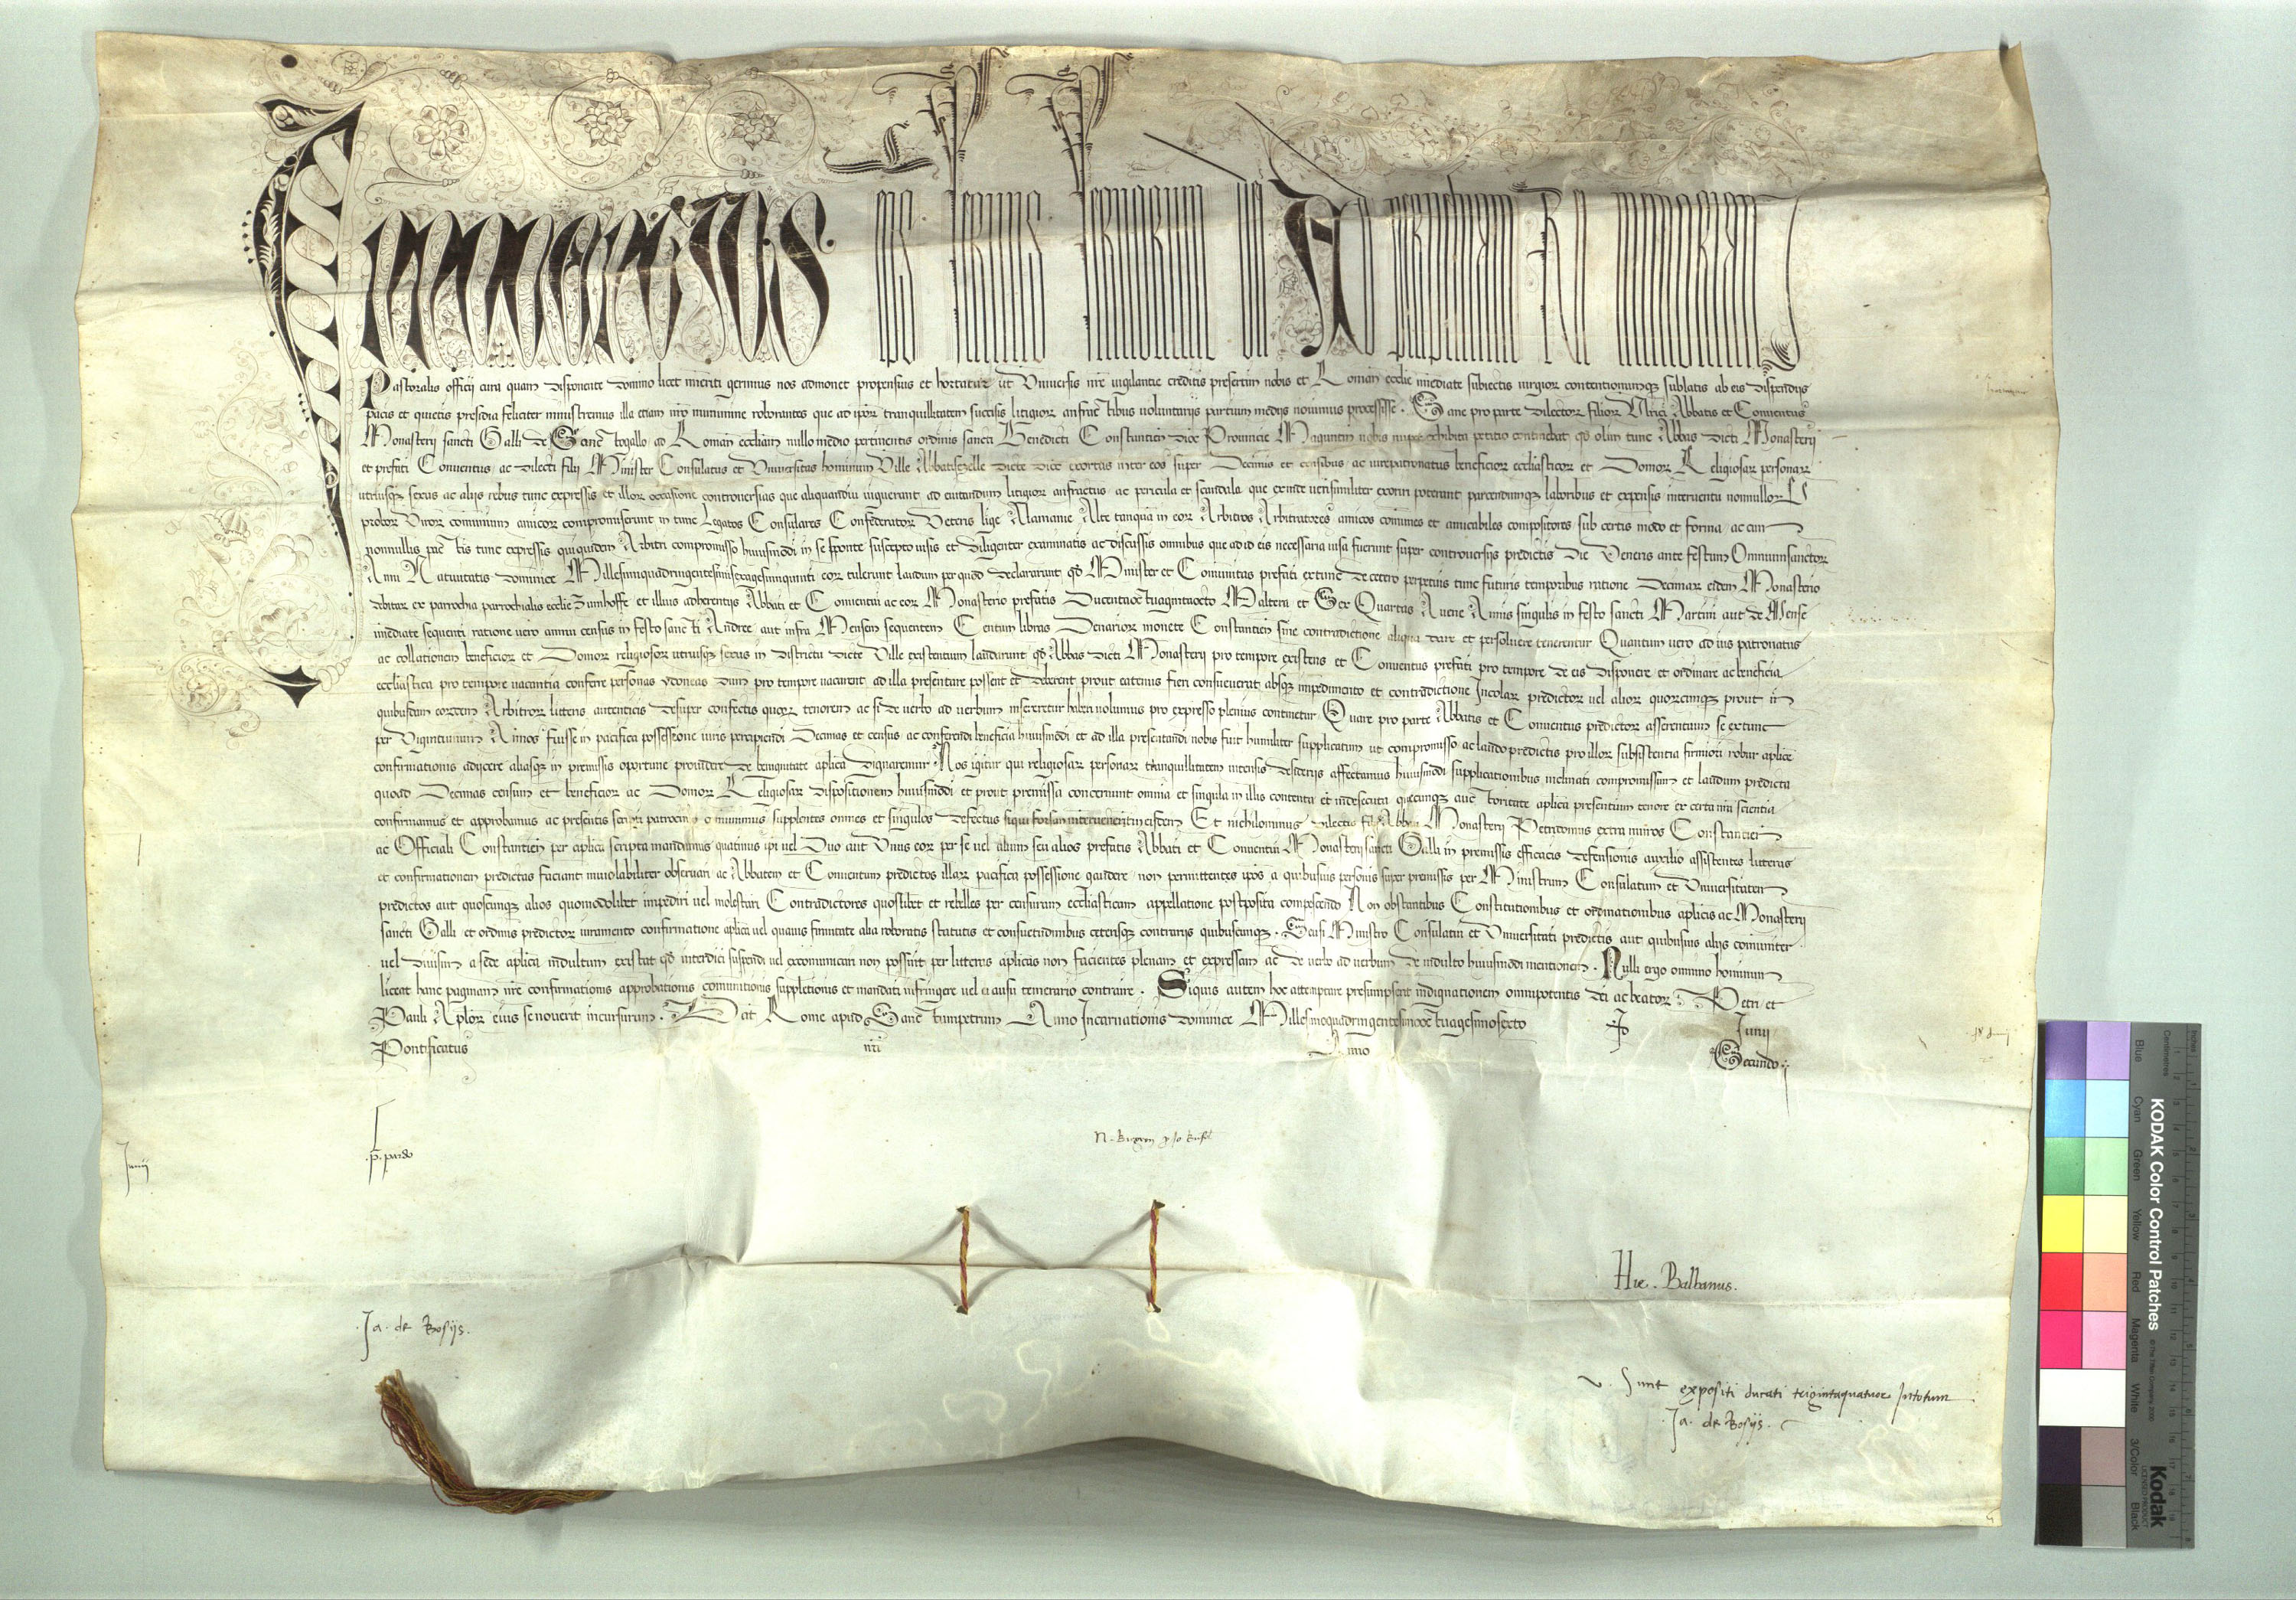 Innocentius eps seruus seruorum dei Ad perpetuam Rei memoriam
Pastoralis officij cura quam disponente domino licet inmeriti gerimus nos admonet propensius et hortatur ut Vniuersis nre vigilantie creditis presertim nobis et Roman ecclie inmediate subiectis iurgior contentionumqz sublatis ab eis dispendijs
pacis et quietis presidia feliciter ministremus illa etiam nro munimine roborantes que ad ipor tranquillitatem succisis litigior anfractibus voluntarijs partium medijs nouimus processisse . Sane pro parte dilector filior Vlrici Abbatis et Conuentus
Monasterij sancti Galli de Sanctogallo ad Roman eccliam nullo medio pertinentis ordinis sancti Benedicti Constantien dioc Prouincie Maguntin nobis nuper exhibita petitio continebat qd olim tunc Abbas dicti Monasterij
et prefati Conuentus ac dilecti filij Minister Consulatus et Vniuersitas hominum Ville Abbatiszelle dicte dioc exortas inter eos super Decimis et censibus ac iurepatronatus beneficior ecclesiasticor et Domor Religiosar personar
utriusqz sexus ac alijs rebus tunc expressis et illor occasione controuersias que aliquandiu viguerant ad euitandum litigior anfractus ac pericula et scandala que exinde verisimiliter exoriri poterant parcendumqz laboribus et expensis interuentu nonnullor
probor Viror comunium amicor compromiserunt in tunc Legatos Consulares Confederator Veteris lige Alamanie Alte tanqua in eor Arbitros Arbitratores amicos comunes et amicabiles compositores sub certis modo et forma ac cum
nonnullis pactis tunc expressis quiquidem Arbitri compromisso huiusmodi in se sponte suscepto visis et diligenter examinatis ac discussis omnibus que ad id eis necessaria visa fuerunt super controuersijs predictis Die Veneris ante festum Omniumsanctor
Anni Natiuitatis dominice Millesimiquadringentesimisexagesimiquinti eor tulerunt laudum per quod declararunt qd Minister et Comunitas prefati extunc de cetero perpetuis tunc futuris temporibus ratione Decimar eidem Monasterio
debitar ex parrochia parrochialis ecclie Zumhoffe et illius adherentijs Abbati et Conuentui ac eor Monasterio prefatis Ducentaoctuagintaocto Maltera et Sex Quartas Auene Annis singulis in festo sancti Martini aut de Mense
inmediate sequenti ratione vero annui census in festo sancti Andree aut infra Mensem sequentem Centum libras Denarior monete Constantien sine contradictione aliqua dare et persoluere tenerentur Quantum vero ad ius patronatus
ac collationem beneficior et Domor religiosor utriusqz sexus in districtu dicte Ville existentium laudarunt qd Abbas dicti Monasterij pro tempore existens et Conuentus prefati pro tempore de eis disponere et ordinare ac beneficia
ecclesiastica pro tempore vacantia conferre personas ydoneas dum pro tempore vacarent ad illa presentare possent et deberent prout eatenus fieri consueuerat absqz impedimento et contradictione Incolar predictor vel alior quorcunqz prout in
quibusdam eorundem Arbitror litteris autenticis desuper confectis quor tenorem ac si de verbo ad verbum insereretur haberi volumus pro expresso plenius continetur Quare pro parte Abbatis et Conuentus predictor asserentium se extunc
per Vigintiunum Annos fuisse in pacifica possessione iuris percipiendi Decimas et census ac conferendi beneficia huiusmodi et ad illa presentandi nobis fuit humiliter supplicatum ut compromisso ac laudo predictis pro illor subsistentia firmiori robur aplice
confirmationis adijcere aliasqz in premissis oportune prouidere de benignitate aplica dignaremur Nos igitur qui religiosar personar tranquillitatem intensis desiderijs affectamus huiusmodi supplicationibus inclinati compromissum et laudum predicta
quoad Decimas censum et beneficior ac Domor Religiosar dispositionem huiusmodi et prout premissa concernunt omnia et singula in illis contenta et indesecuta quecunqz auctoritate aplica presentium tenore ex certa nra scientia
confirmamus et approbamus ac presentis scripti patrocinio comunimus supplentes omnes et singulos defectus siqui forsan interuenerint in eisdem Et nichilominus dilectis filijs Abbati Monasterij Petridomus extra muros Constancien
ac Officiali Constantien per aplica scripta mandamus quatinus ipi vel Duo aut Vnus eor per se vel alium seu alios prefatis Abbati et Conuentui Monasterij sancti Galli in premissis efficacis defensionis auxilio assistentes litteras
et confirmationem predictas faciant inuiolabiliter obseruari ac Abbatem et Conuentum predictos illar pacifica possessione gaudere non permittentes ipos a quibusuis personis super premissis per Ministrum Consulatum et Vniuersitatem
predictos aut quoscunqz alios quomodolibet impediri vel molestari Contradictores quoslibet et rebelles per censuram ecclesiasticam appellatione postposita compescendo Non obstantibus Constitutionibus et ordinationibus aplicis ac Monasterij
sancti Galli et ordinis predictor iuramento confirmatione aplica vel quauis firmitate alia roboratis statutis et consuetudinibus ceterisqz contrarijs quibuscunqz . Seu si Ministro Consulatui et Vniuersitati predictis aut quibusuis alijs comuniter
vel diuisim a sede aplica indultum existat qd interdici suspendi vel excomunicari non possint per litteras aplicas non facientes plenam et expressam ac de verbo ad verbum de indulto huiusmodi mentionem . Nulli ergo omnino hominum
liceat hanc paginam nre confirmationis approbationis comunitionis suppletionis et mandati infringere vel ei ausu temerario contraire . Siquis autem hoc attemptare presumpserit indignationem omnipotentis dei ac beator Petri et
Pauli Aplor eius se nouerit incursurum . Dat Rome apud Sanctumpetrum Anno Incarnationis dominice Millesimoquadringentesimooctuagesimosexto Id Junij
Pontificatus nri Anno Secundo
Junij
p. pardo
Hie. Balbanus.
Ja. de Bosijs.
v. Sunt expositi ducati trigintaquatuor Intotum
Ja. de Bosijs.
KODAK Color Control Patches
Blue Cyan Green Yellow Red Magenta White 3/Color Black
Inches Centimetres
Kodak
LICENSED PRODUCT